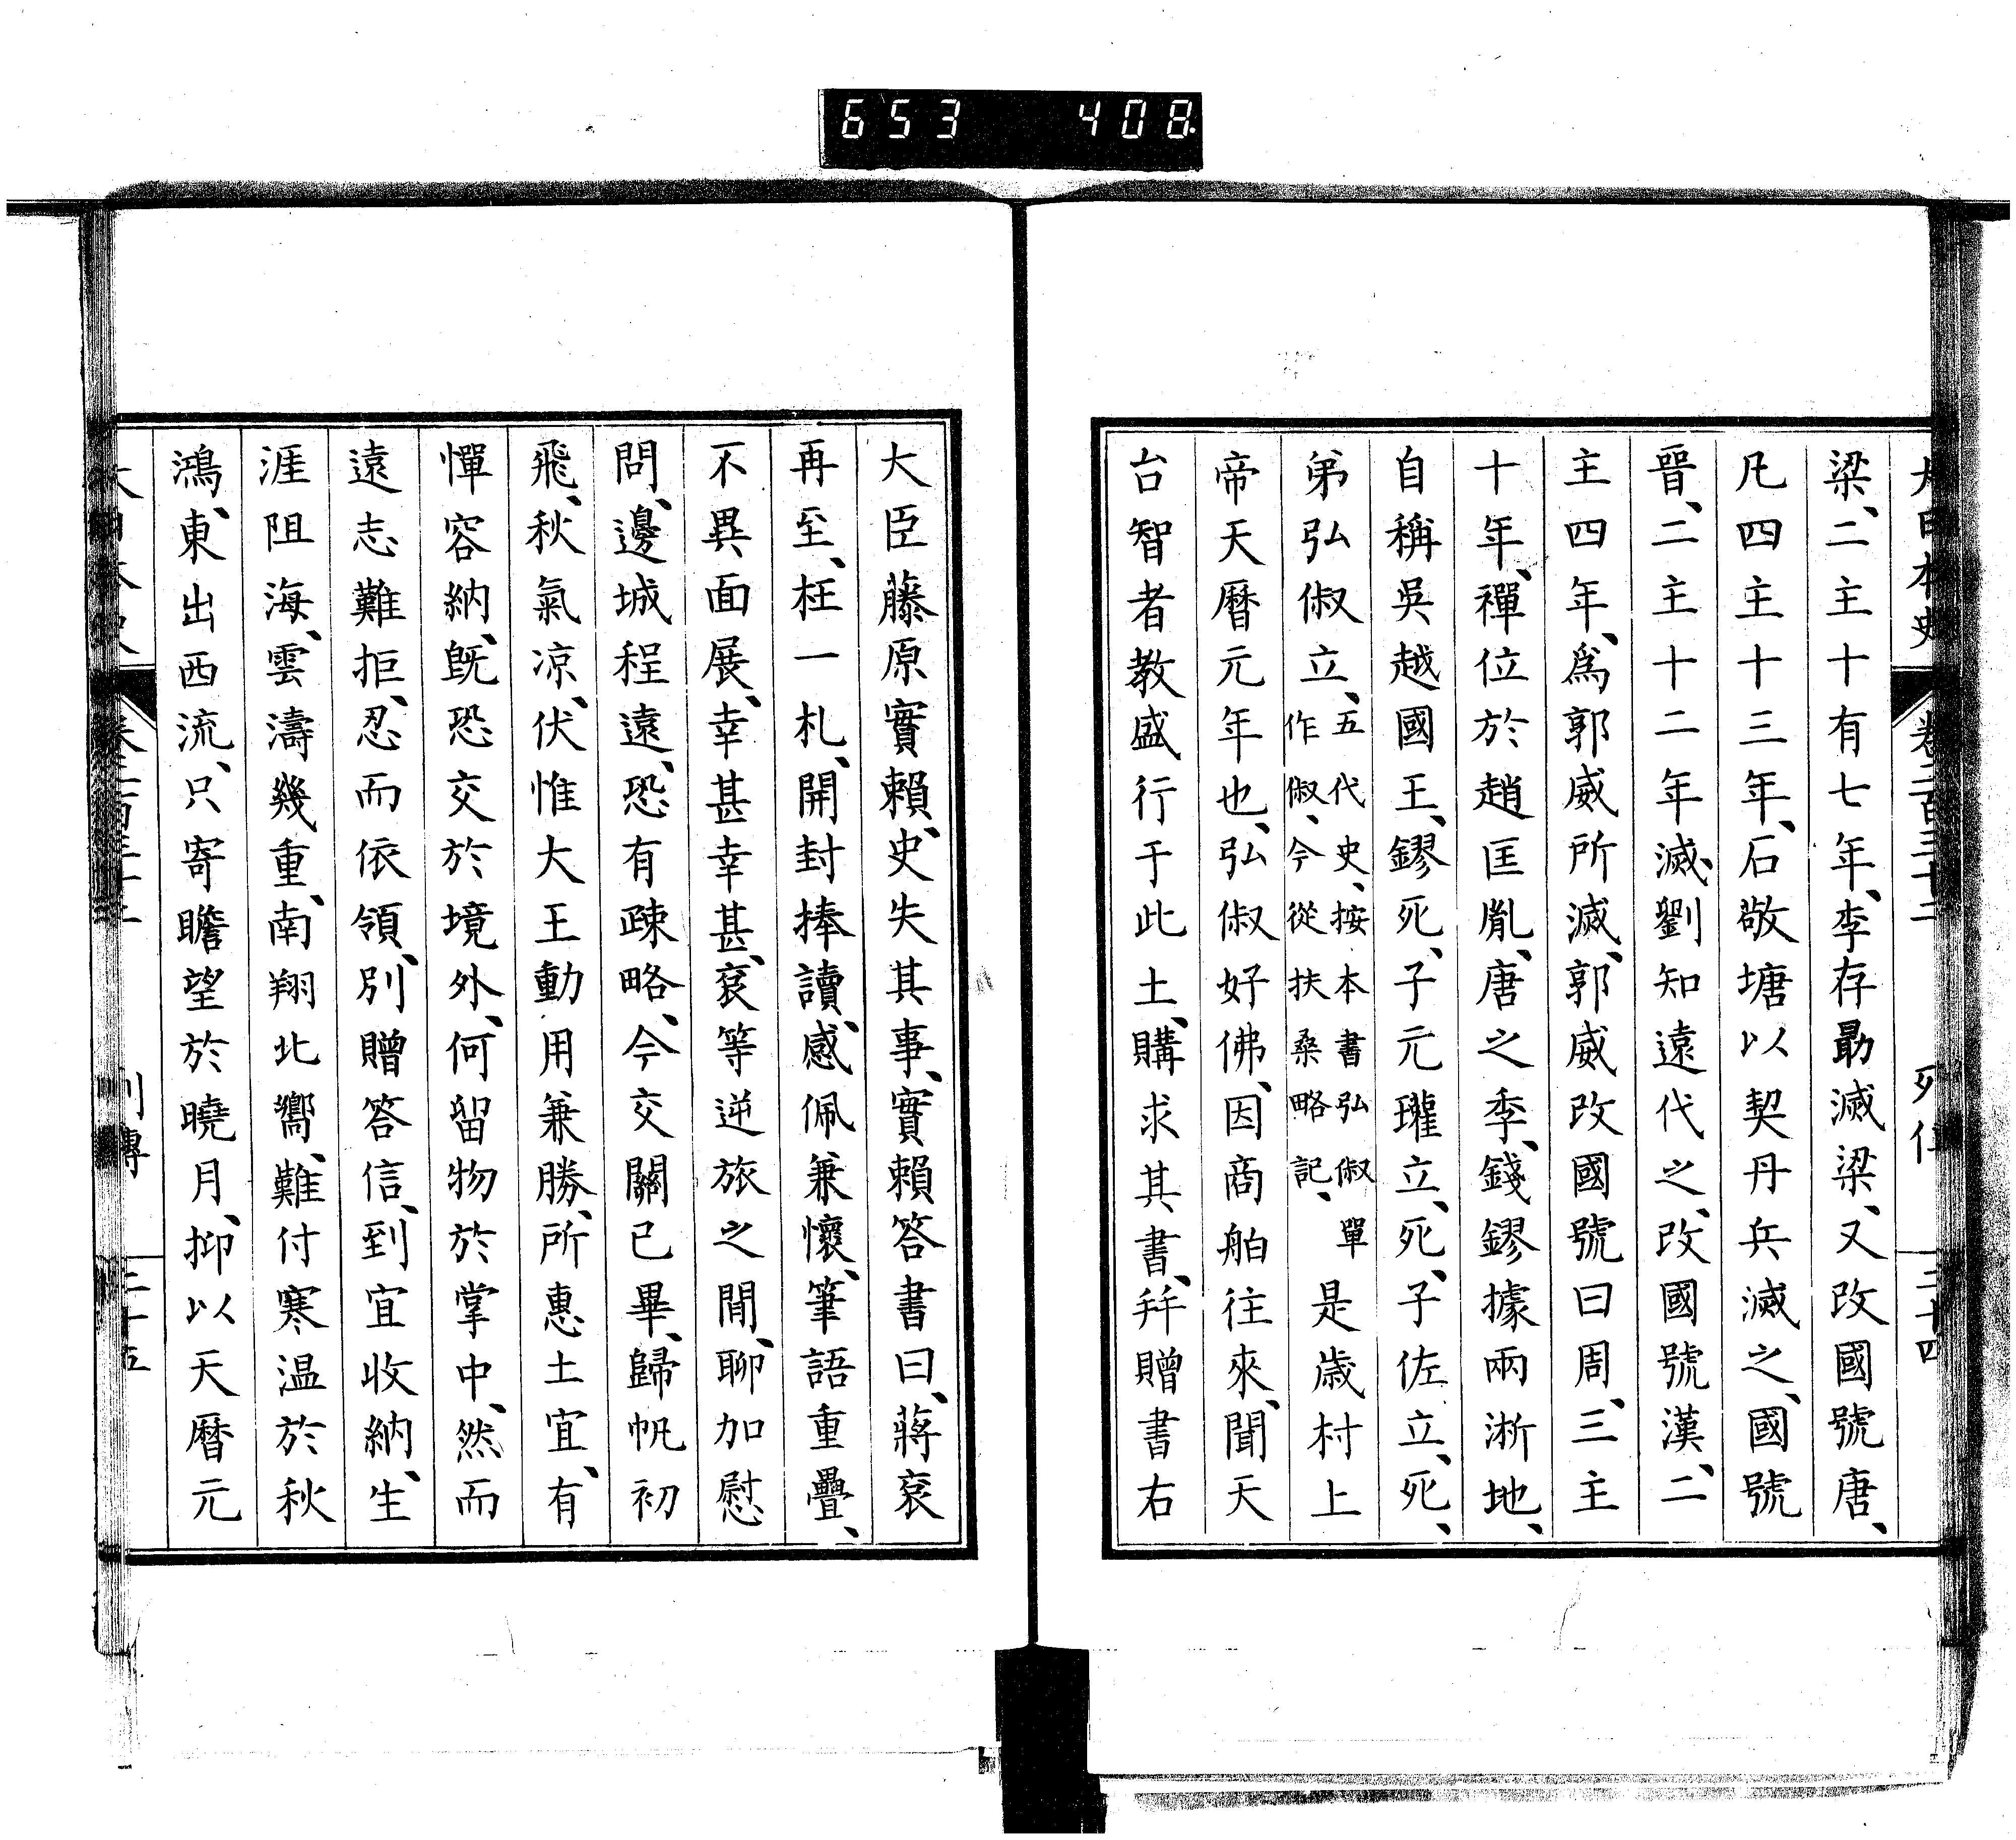 653 408
梁、二主十有七年、李存勗滅梁、又改國號唐、
凡四主十三年、石敬塘以契丹兵滅之、國號
晉、二主十二年滅、劉知遠代之、改國號漢、二
主四年、爲郭威所滅、郭威改國號曰周、三主
十年、禪位於趙匡胤、唐之季、錢鏐據兩淅地、
自稱吳越國王、鏐死、子元瓘立、死、子佐立、死、
弟弘俶立、五代史、按本書弘俶單作俶、今從扶桑略記、是歲村上
帝天曆元年也、弘俶好佛、因商舶往來、聞天
台智者教盛行于此土、購求其書、幷贈書右
大臣藤原實賴、史失其事、實賴答書曰、蔣袞
再至、枉一札、開封捧讀、感佩兼懷、筆語重疊、
不異面展、幸甚幸甚、袞等逆旅之間、聊加慰
問、邊城程遠、恐有疎略、今交關已畢、歸帆初
飛、秋氣凉、伏惟大王動用兼勝、所惠土宜、有
憚容納、既恐交於境外、何留物於掌中、然而
遠志難拒、忍而依領、別贈答信、到宜收納、生
涯阻海、雲濤幾重、南翔北嚮、難付寒温於秋
鴻、東出西流、只寄瞻望於曉月、抑以天曆元